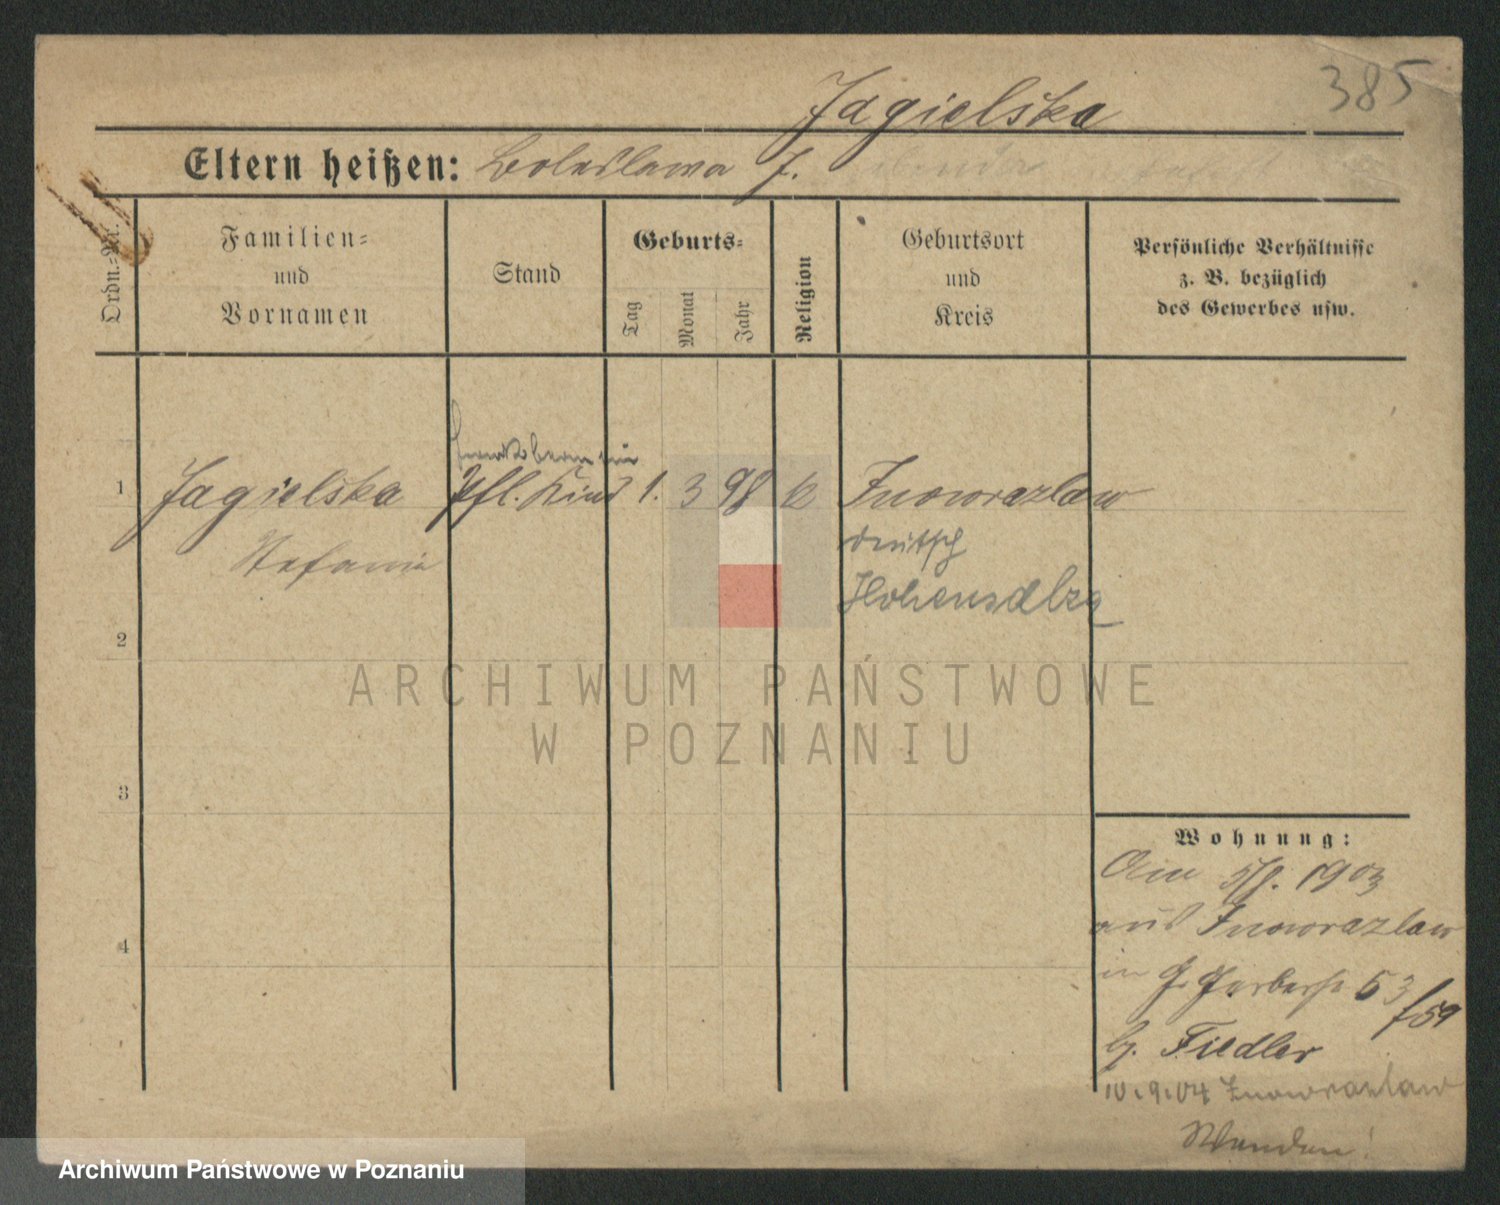 385
Jagielska
Eltern heißen: Boleslawa J.
Ordn.-Nr.
Familien-
und
Vornamen
Stand
Geburts-
Tag
Monat
Jahr
Religion
Geburtsort
und
Kreis
Persönliche Verhältnisse
z. B. bezüglich
des Gewerbes usw.
1 Jagielska Pfl. Kind 1. 3 98 k Inowrazlaw
Stefania
deutsch
Hohensalza
2
3
4
Wohnung:
Am 5/8. 1903
aus Inowrazlaw
in Gr. Gerberstr 53
/59
b. Fiedler
10.9.04 Inowrazlaw
Wenden!
ARCHIWUM PAŃSTWOWE
W POZNANIU
Archiwum Państwowe w Poznaniu